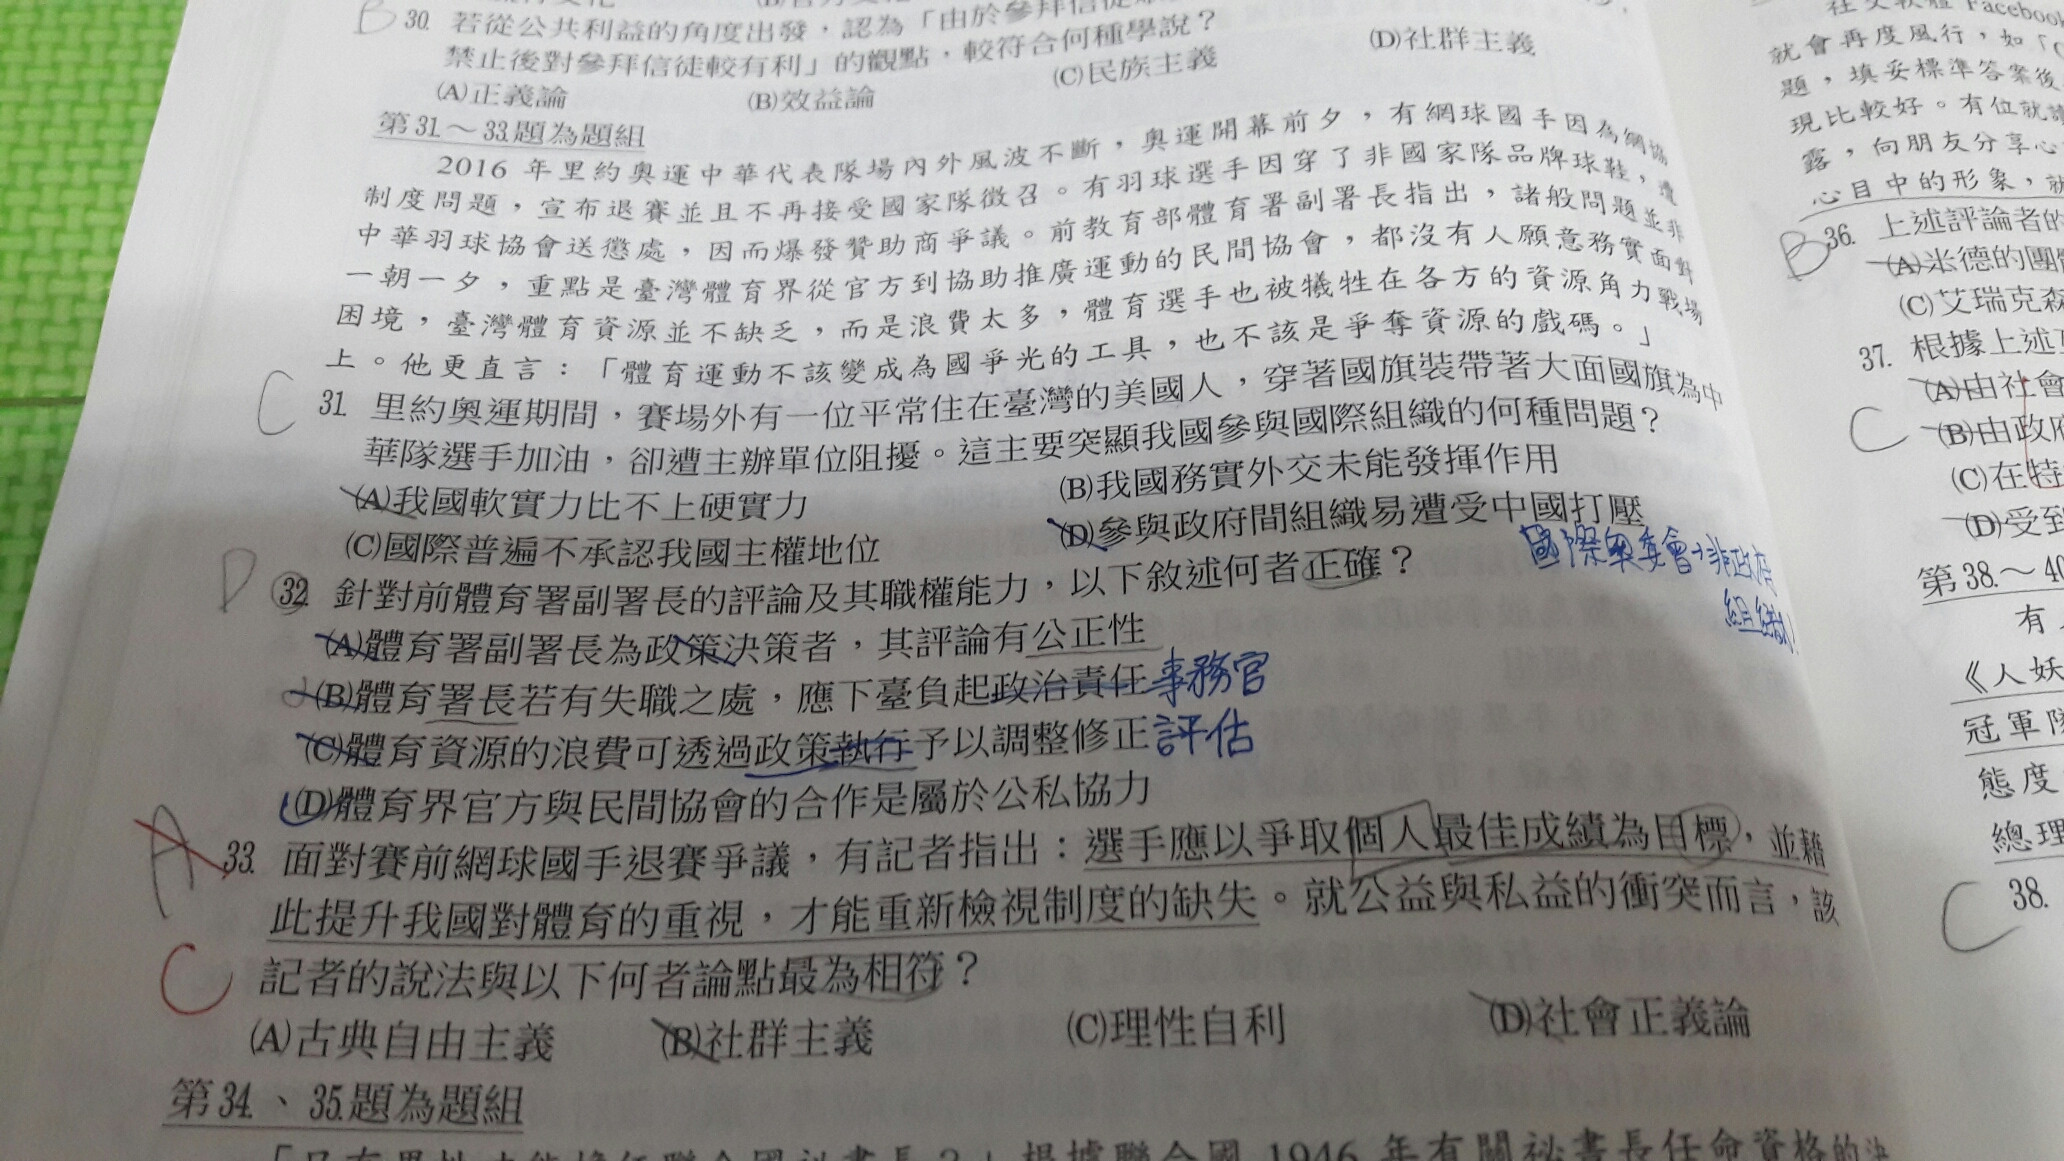 B
30. 若從公共利益的角度出發，認為「由於參拜信徒
禁止後對參拜信徒較有利」的觀點，較符合何種學說？
(A)正義論 (B)效益論 (C)民族主義 (D)社群主義
第31.～33.題為題組
2016 年里約奧運中華代表隊場內外風波不斷，奧運開幕前夕，有網球國手因為網協
制度問題，宣布退賽並且不再接受國家隊徵召。有羽球選手因穿了非國家隊品牌球鞋，遭
中華羽球協會送懲處，因而爆發贊助商爭議。前教育部體育署副署長指出，諸般問題並非
一朝一夕，重點是臺灣體育界從官方到協助推廣運動的民間協會，都沒有人願意務實面對
困境，臺灣體育資源並不缺乏，而是浪費太多，體育選手也被犧牲在各方的資源角力戰場
上。他更直言：「體育運動不該變成為國爭光的工具，也不該是爭奪資源的戲碼。」
C
31. 里約奧運期間，賽場外有一位平常住在臺灣的美國人，穿著國旗裝帶著大面國旗為中
華隊選手加油，卻遭主辦單位阻擾。這主要突顯我國參與國際組織的何種問題？
(A)我國軟實力比不上硬實力 (B)我國務實外交未能發揮作用
(C)國際普遍不承認我國主權地位 (D)參與政府間組織易遭受中國打壓
國際奧委會→非政府
組織
D
32. 針對前體育署副署長的評論及其職權能力，以下敘述何者正確？
(A)體育署副署長為政策決策者，其評論有公正性
(B)體育署長若有失職之處，應下臺負起政治責任 事務官
(C)體育資源的浪費可透過政策執行予以調整修正 評估
(D)體育界官方與民間協會的合作是屬於公私協力
A
33. 面對賽前網球國手退賽爭議，有記者指出：選手應以爭取個人最佳成績為目標，並藉
此提升我國對體育的重視，才能重新檢視制度的缺失。就公益與私益的衝突而言，該
C
記者的說法與以下何者論點最為相符？
(A)古典自由主義 (B)社群主義 (C)理性自利 (D)社會正義論
第34.、35.題為題組
社交軟體 Facebook
就會再度風行，如「
題，填妥標準答案後
現比較好。有位就讀
露，向朋友分享心
心目中的形象，就
B
36. 上述評論者的
(A)米德的團體
(C)艾瑞克森
37. 根據上述
(A)由社會
C
(B)由政府
(C)在特
(D)受到
第38.～40
有
《人妖
冠軍隊
態度
總理
C
38.